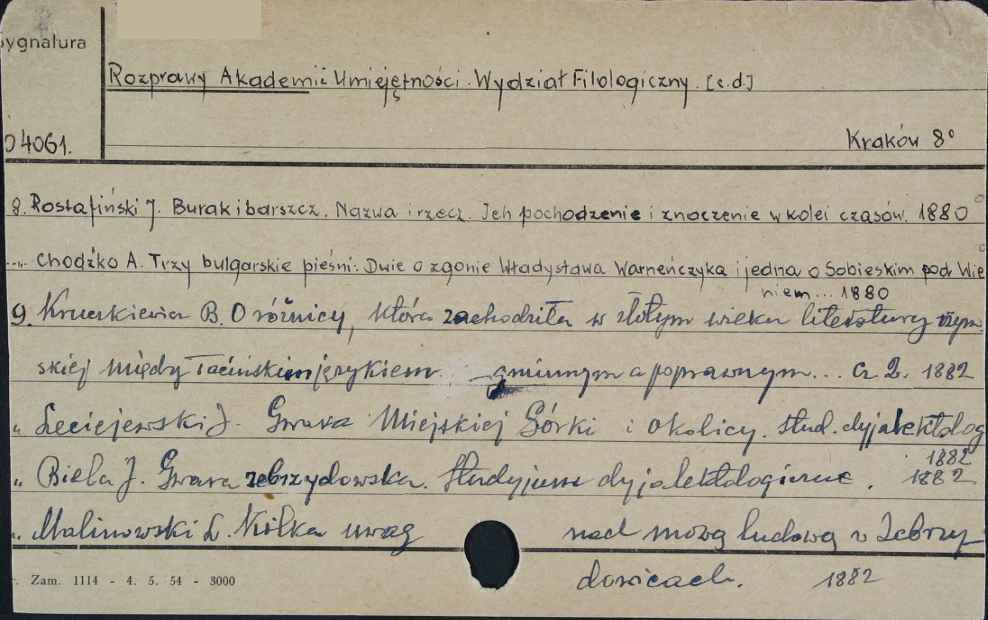 Sygnatura
Rozprawy Akademii Umiejętności. Wydział Filologiczny. [c.d.]
04061. Kraków 8°
8. Rostafiński J. Burak i barszcz. Nazwa i rzecz. Ich pochodzenie i znaczenie w kolei czasów. 1880
-„- Chodźko A. Trzy bulgarskie pieśni: Dwie o zgonie Władysława Warneńczyka i jedna o Sobieskim pod Wie
niem... 1880
9. Kruczkiewicz B. O różnicy, która zachodziła w złotym wieku literatury rzym
skiej między łacińskim językiem gminnym a poprawnym... Cz 2. 1882
„ Leciejewski J. Gwara Miejskiej Górki i okolicy. Stud. dyjalektolog
1882
„ Biela J. Gwara zebrzydowska. Studyjum dyjalektologiczne. 1882
„ Malinowski L. Kilka uwag nad mową ludową w Zebrzy-
dowicach. 1882
Zam. 1114 - 4. 5. 54 - 3000